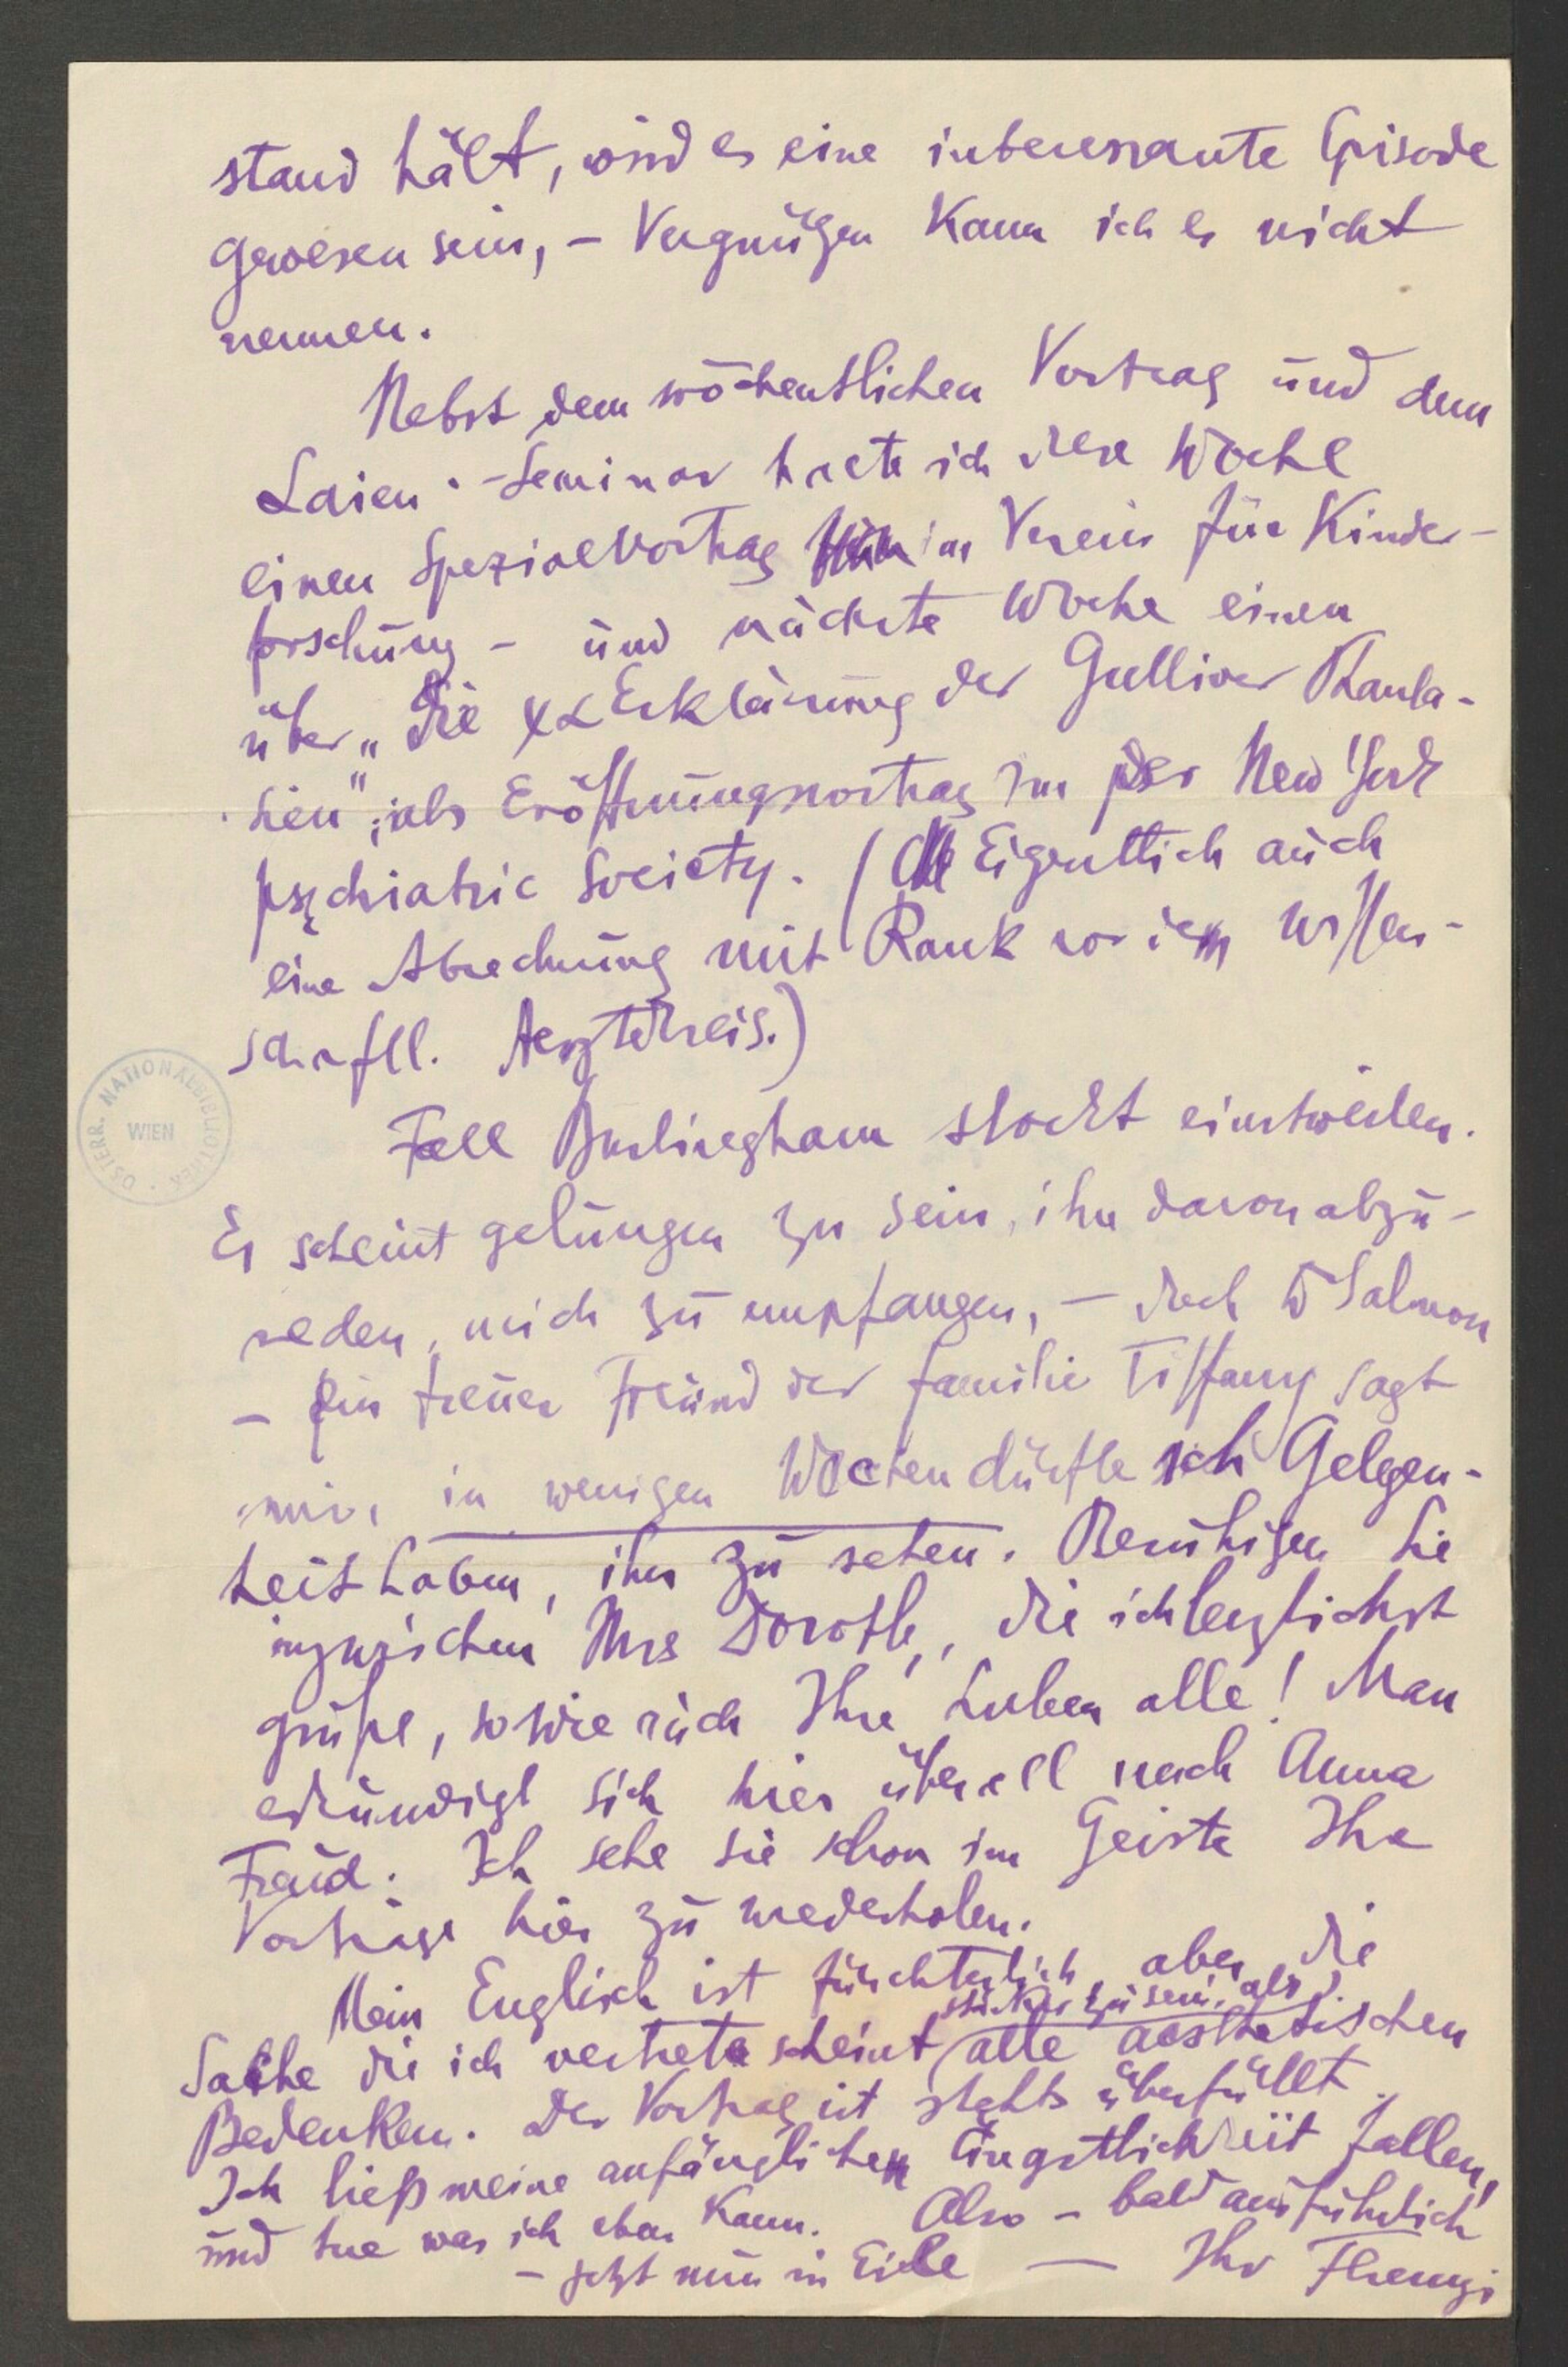 stand hält, wird es eine interessante Episode
gewesen sein, – Vergnügen kann ich es nicht
nennen.
Nebst dem wöchentlichen Vortrag und dem
Laien-Seminar hielt ich diese Woche
einen Spezialvortrag im Verein für Kinder-
forschung – und nächste Woche einen
über „Die ΨαErklärung der Gulliver Phanta-
sien“, als Eröffnungsvortrag in der New York
psychiatric Society. (Eigentlich auch
eine Abrechnung mit Rank vor dem wissen-
schaftl. Aerztekreis.)
Fall Burlingham stockt einstweilen.
Es scheint gelungen zu sein, ihn davon abzu-
reden, mich zu empfangen, – doch Dr Salmon
– ein treuer Freund der Familie Tiffany sagt
mir, in wenigen Wochen dürfte ich Gelegen-
heit haben, ihn zu sehen. Beruhigen Sie
inzwischen Mrs Dorothy, die ich herzlichst
grüße, sowie auch Ihre Lieben alle! Man
erkundigt sich hier überall nach Anna
Freud. Ich sehe sie schon im Geiste Ihre
Vorträge hier zu wiederholen.
Mein Englisch ist fürchterlich, aber die
stärker zu sein, als
Sache die ich vertrete scheint alle aesthetischen
Bedenken. Der Vortrag ist stehts überfüllt.
Ich ließ meine anfänglichen Ängstlichkeit fallen,
und tue was ich eben kann. Also – bald ausführlich
– jetzt nur in Eile — Ihr Ferenczi
ÖSTERR. NATIONALBIBLIOTHEK
WIEN